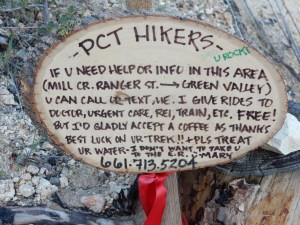 -PCT HIKERS-
U ROCK!
IF U NEED HELP OR INFO IN THIS AREA
(MILL CR. RANGER ST. → GREEN VALLEY)
U CAN CALL OR TEXT, ME. I GIVE RIDES TO
DOCTOR, URGENT CARE, REI, TRAIN, ETC. FREE!
BUT I'D GLADLY ACCEPT A COFFEE AS THANKS
BEST LUCK ON UR TREK!!+PLS TREAT
UR WATER-I DON'T WANT TO TAKE U
TO THE E.R. U-MARY
661.713.5204